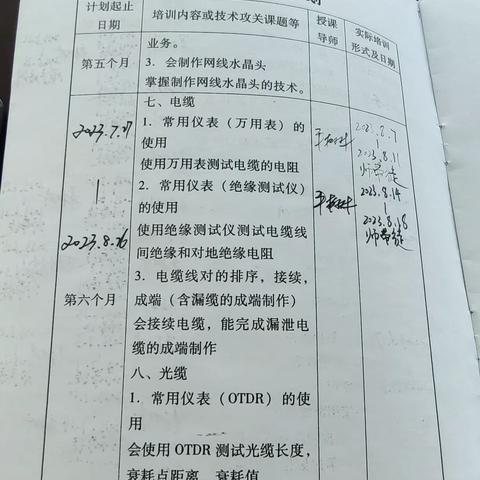 划
计划起止
日期
培训内容或技术攻关课题等
授课
导师
实际培训
形式及日期
第五个月
业务。
3. 会制作网线水晶头
掌握制作网线水晶头的技术。
七、电缆
1. 常用仪表（万用表）的
使用
使用万用表测试电缆的电阻
2. 常用仪表（绝缘测试仪）
的使用
使用绝缘测试仪测试电缆线
间绝缘和对地绝缘电阻
3. 电缆线对的排序，接续，
成端（含漏缆的成端制作）
会接续电缆，能完成漏泄电
缆的成端制作
八、光缆
1. 常用仪表（OTDR）的使
用
会使用 OTDR 测试光缆长度，
衰耗点距离、衰耗值
2023.7.17
|
2023.8.16
第六个月
2023.8.7
|
2023.8.11
师带徒
2023.8.14
|
2023.8.18
师带徒